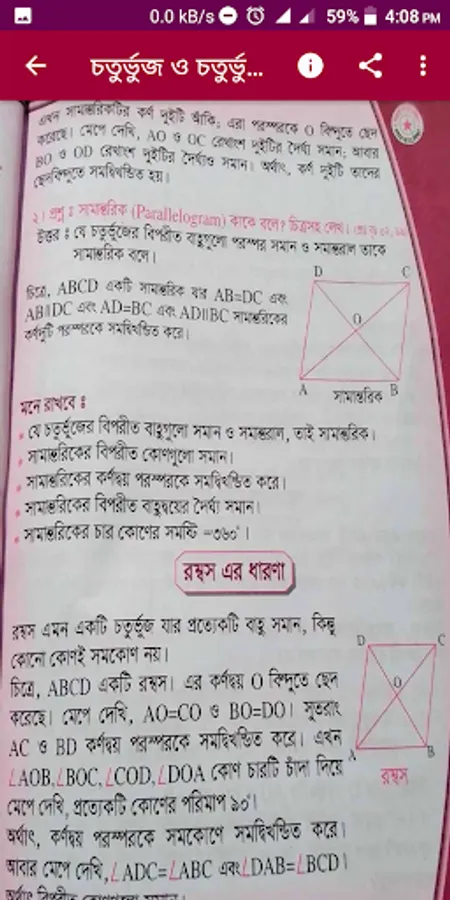 0.0 kB/s 59% 4:08 PM
চতুর্ভুজ ও চতুর্ভু...
এখন সামান্তরিকটির কর্ণ দুইটি আঁকি; এরা পরস্পরকে O বিন্দুতে ছেদ
করেছে। মেপে দেখি, AO ও OC রেখাংশ দুইটির দৈর্ঘ্য সমান; আবার
BO ও OD রেখাংশ দুইটির দৈর্ঘ্যও সমান। অর্থাৎ, কর্ণ দুইটি তাদের
ছেদবিন্দুতে সমদ্বিখণ্ডিত হয়।
২। প্রশ্ন : সামান্তরিক (Parallelogram) কাকে বলে? চিত্রসহ লেখ।
উত্তর : যে চতুর্ভুজের বিপরীত বাহুগুলো পরস্পর সমান ও সমান্তরাল তাকে
সামান্তরিক বলে।
চিত্রে, ABCD একটি সামান্তরিক যার AB=DC এবং
AB||DC এবং AD=BC এবং AD||BC সামান্তরিকের
কর্ণদুটি পরস্পরকে সমদ্বিখণ্ডিত করে।
D C
O
A B
সামান্তরিক
মনে রাখবে :
• যে চতুর্ভুজের বিপরীত বাহুগুলো সমান ও সমান্তরাল, তাই সামান্তরিক।
• সামান্তরিকের বিপরীত কোণগুলো সমান।
• সামান্তরিকের কর্ণদ্বয় পরস্পরকে সমদ্বিখণ্ডিত করে।
• সামান্তরিকের বিপরীত বাহুদ্বয়ের দৈর্ঘ্য সমান।
• সামান্তরিকের চার কোণের সমষ্টি =৩৬০°।
রম্বস এর ধারণা
রম্বস এমন একটি চতুর্ভুজ যার প্রত্যেকটি বাহু সমান, কিন্তু
কোনো কোণই সমকোণ নয়।
চিত্রে, ABCD একটি রম্বস। এর কর্ণদ্বয় O বিন্দুতে ছেদ
করেছে। মেপে দেখি, AO=CO ও BO=DO। সুতরাং
AC ও BD কর্ণদ্বয় পরস্পরকে সমদ্বিখণ্ডিত করে। এখন
∠AOB,∠BOC,∠COD,∠DOA কোণ চারটি চাঁদা দিয়ে
মেপে দেখি, প্রত্যেকটি কোণের পরিমাপ ৯০°।
অর্থাৎ, কর্ণদ্বয় পরস্পরকে সমকোণে সমদ্বিখণ্ডিত করে।
আবার মেপে দেখি,∠ADC=∠ABC এবং∠DAB=∠BCD।
অর্থাৎ বিপরীত কোণগুলো সমান।
D C
O
A B
রম্বস